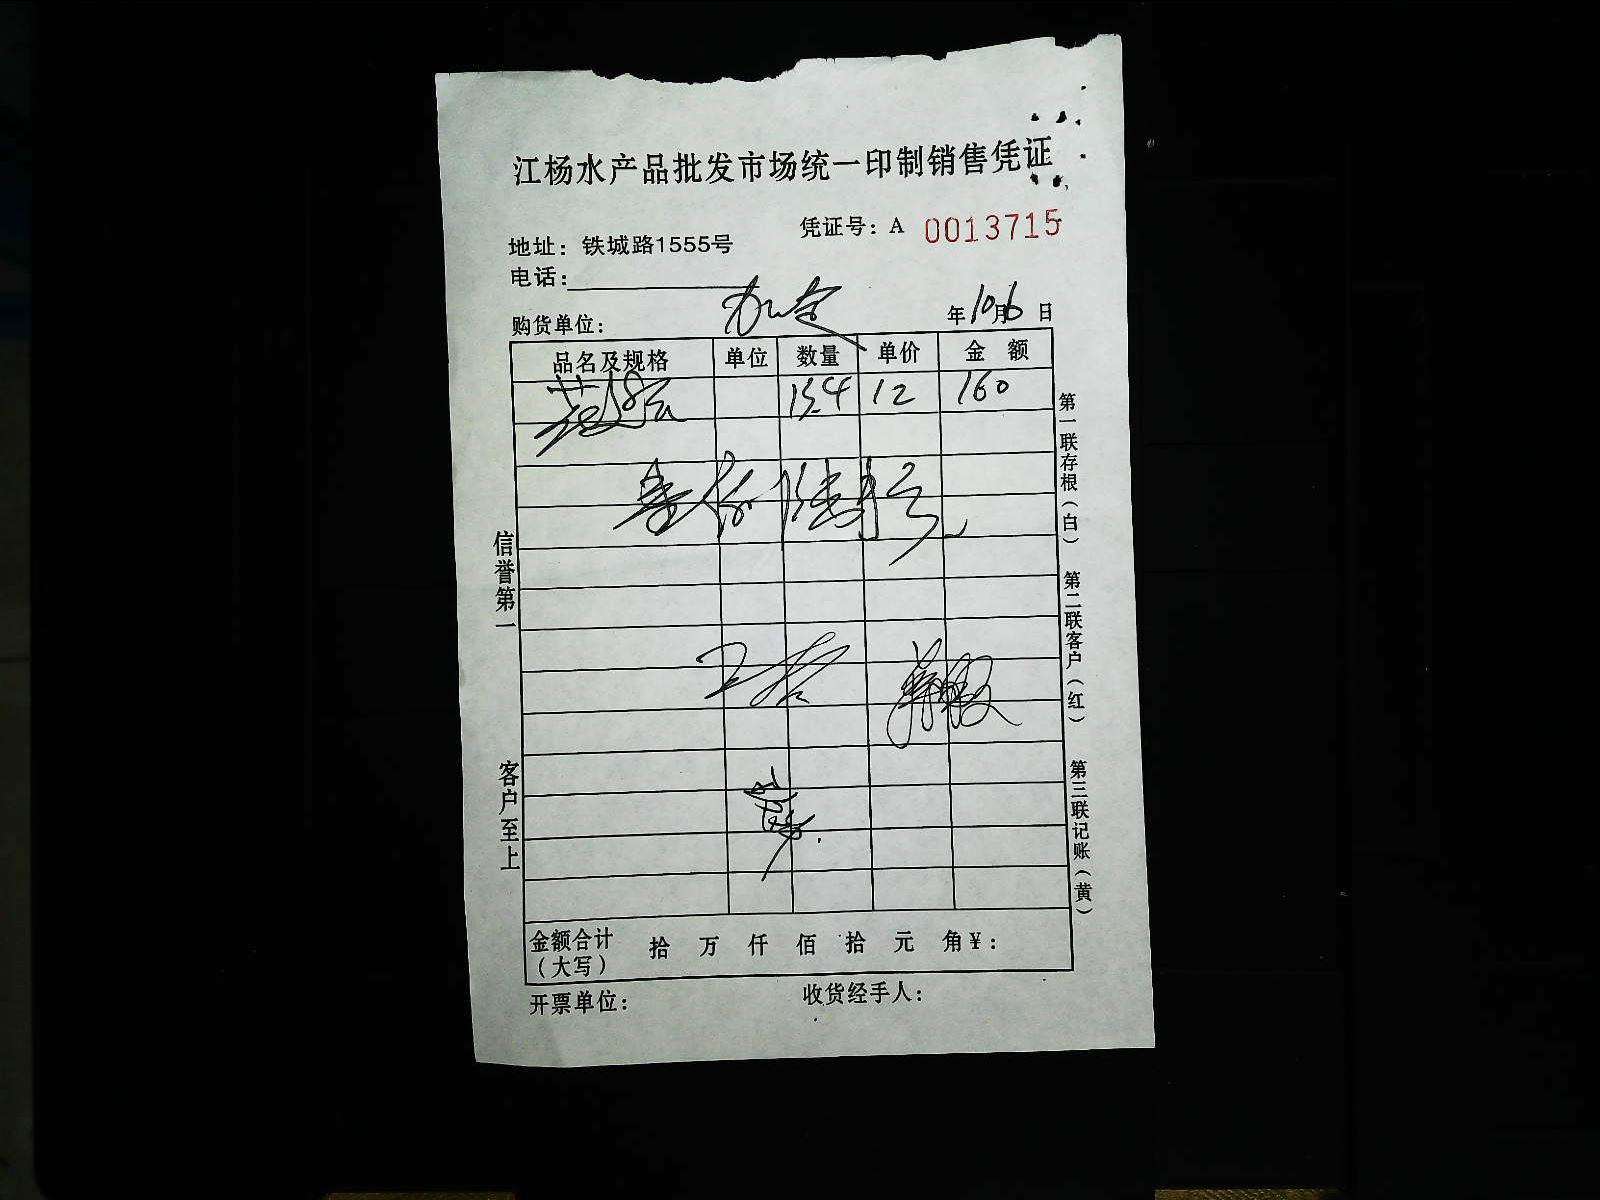 江杨水产品批发市场统一印制销售凭证
凭证号：A 0013715
地址：铁城路1555号
电话：
购货单位：
年10月6日
品名及规格 单位 数量 单价 金额
12 160
信誉第一
客户至上
第一联存根（白）
第二联客户（红）
第三联记账（黄）
金额合计（大写） 拾 万 仟 佰 拾 元 角 ¥：
开票单位： 收货经手人：